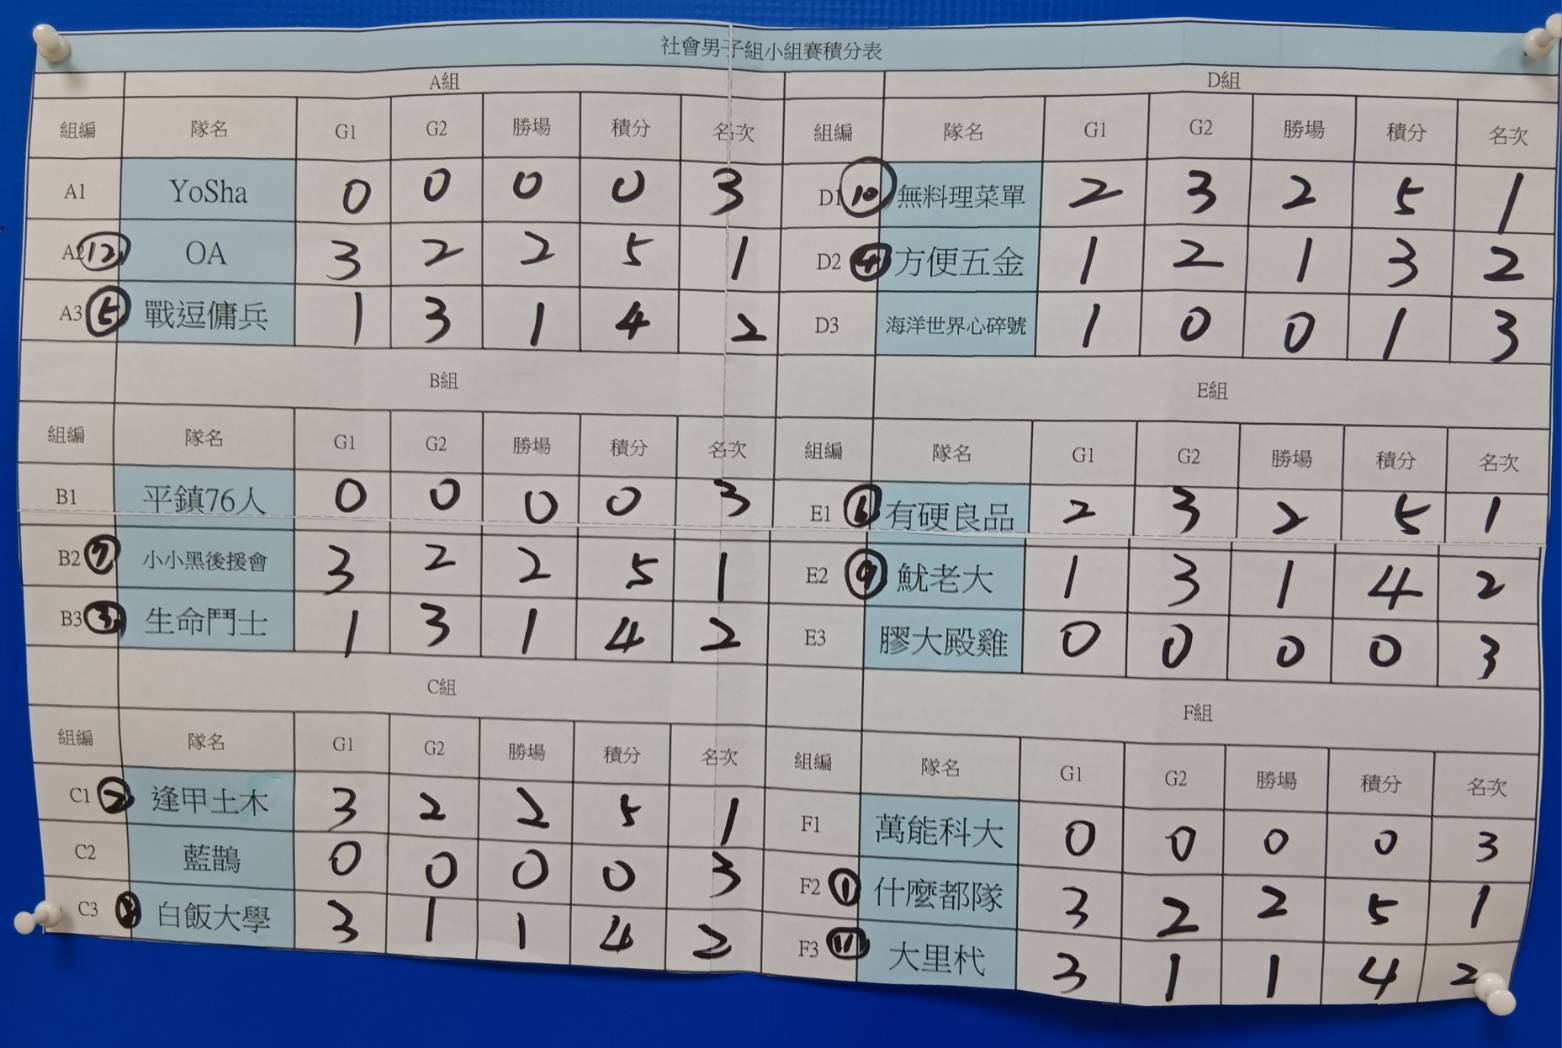 社會男子組小組賽積分表
A組 D組
組編 隊名 G1 G2 勝場 積分 名次 組編 隊名 G1 G2 勝場 積分 名次
A1 YoSha 0 0 0 0 3 D1 10 無料理菜單 2 3 2 5 1
A2 12 OA 3 2 2 5 1 D2 4 方便五金 1 2 1 3 2
A3 5 戰逗傭兵 1 3 1 4 2 D3 海洋世界心碎號 1 0 0 1 3
B組 E組
組編 隊名 G1 G2 勝場 積分 名次 組編 隊名 G1 G2 勝場 積分 名次
B1 平鎮76人 0 0 0 0 3 E1 6 有硬良品 2 3 2 5 1
B2 7 小小黑後援會 3 2 2 5 1 E2 9 魷老大 1 3 1 4 2
B3 3 生命鬥士 1 3 1 4 2 E3 膠大殿雞 0 0 0 0 3
C組 F組
組編 隊名 G1 G2 勝場 積分 名次 組編 隊名 G1 G2 勝場 積分 名次
C1 2 逢甲土木 3 2 2 5 1 F1 萬能科大 0 0 0 0 3
C2 藍鵲 0 0 0 0 3 F2 1 什麼都隊 3 2 2 5 1
C3 8 白飯大學 3 1 1 4 2 F3 11 大里杙 3 1 1 4 2